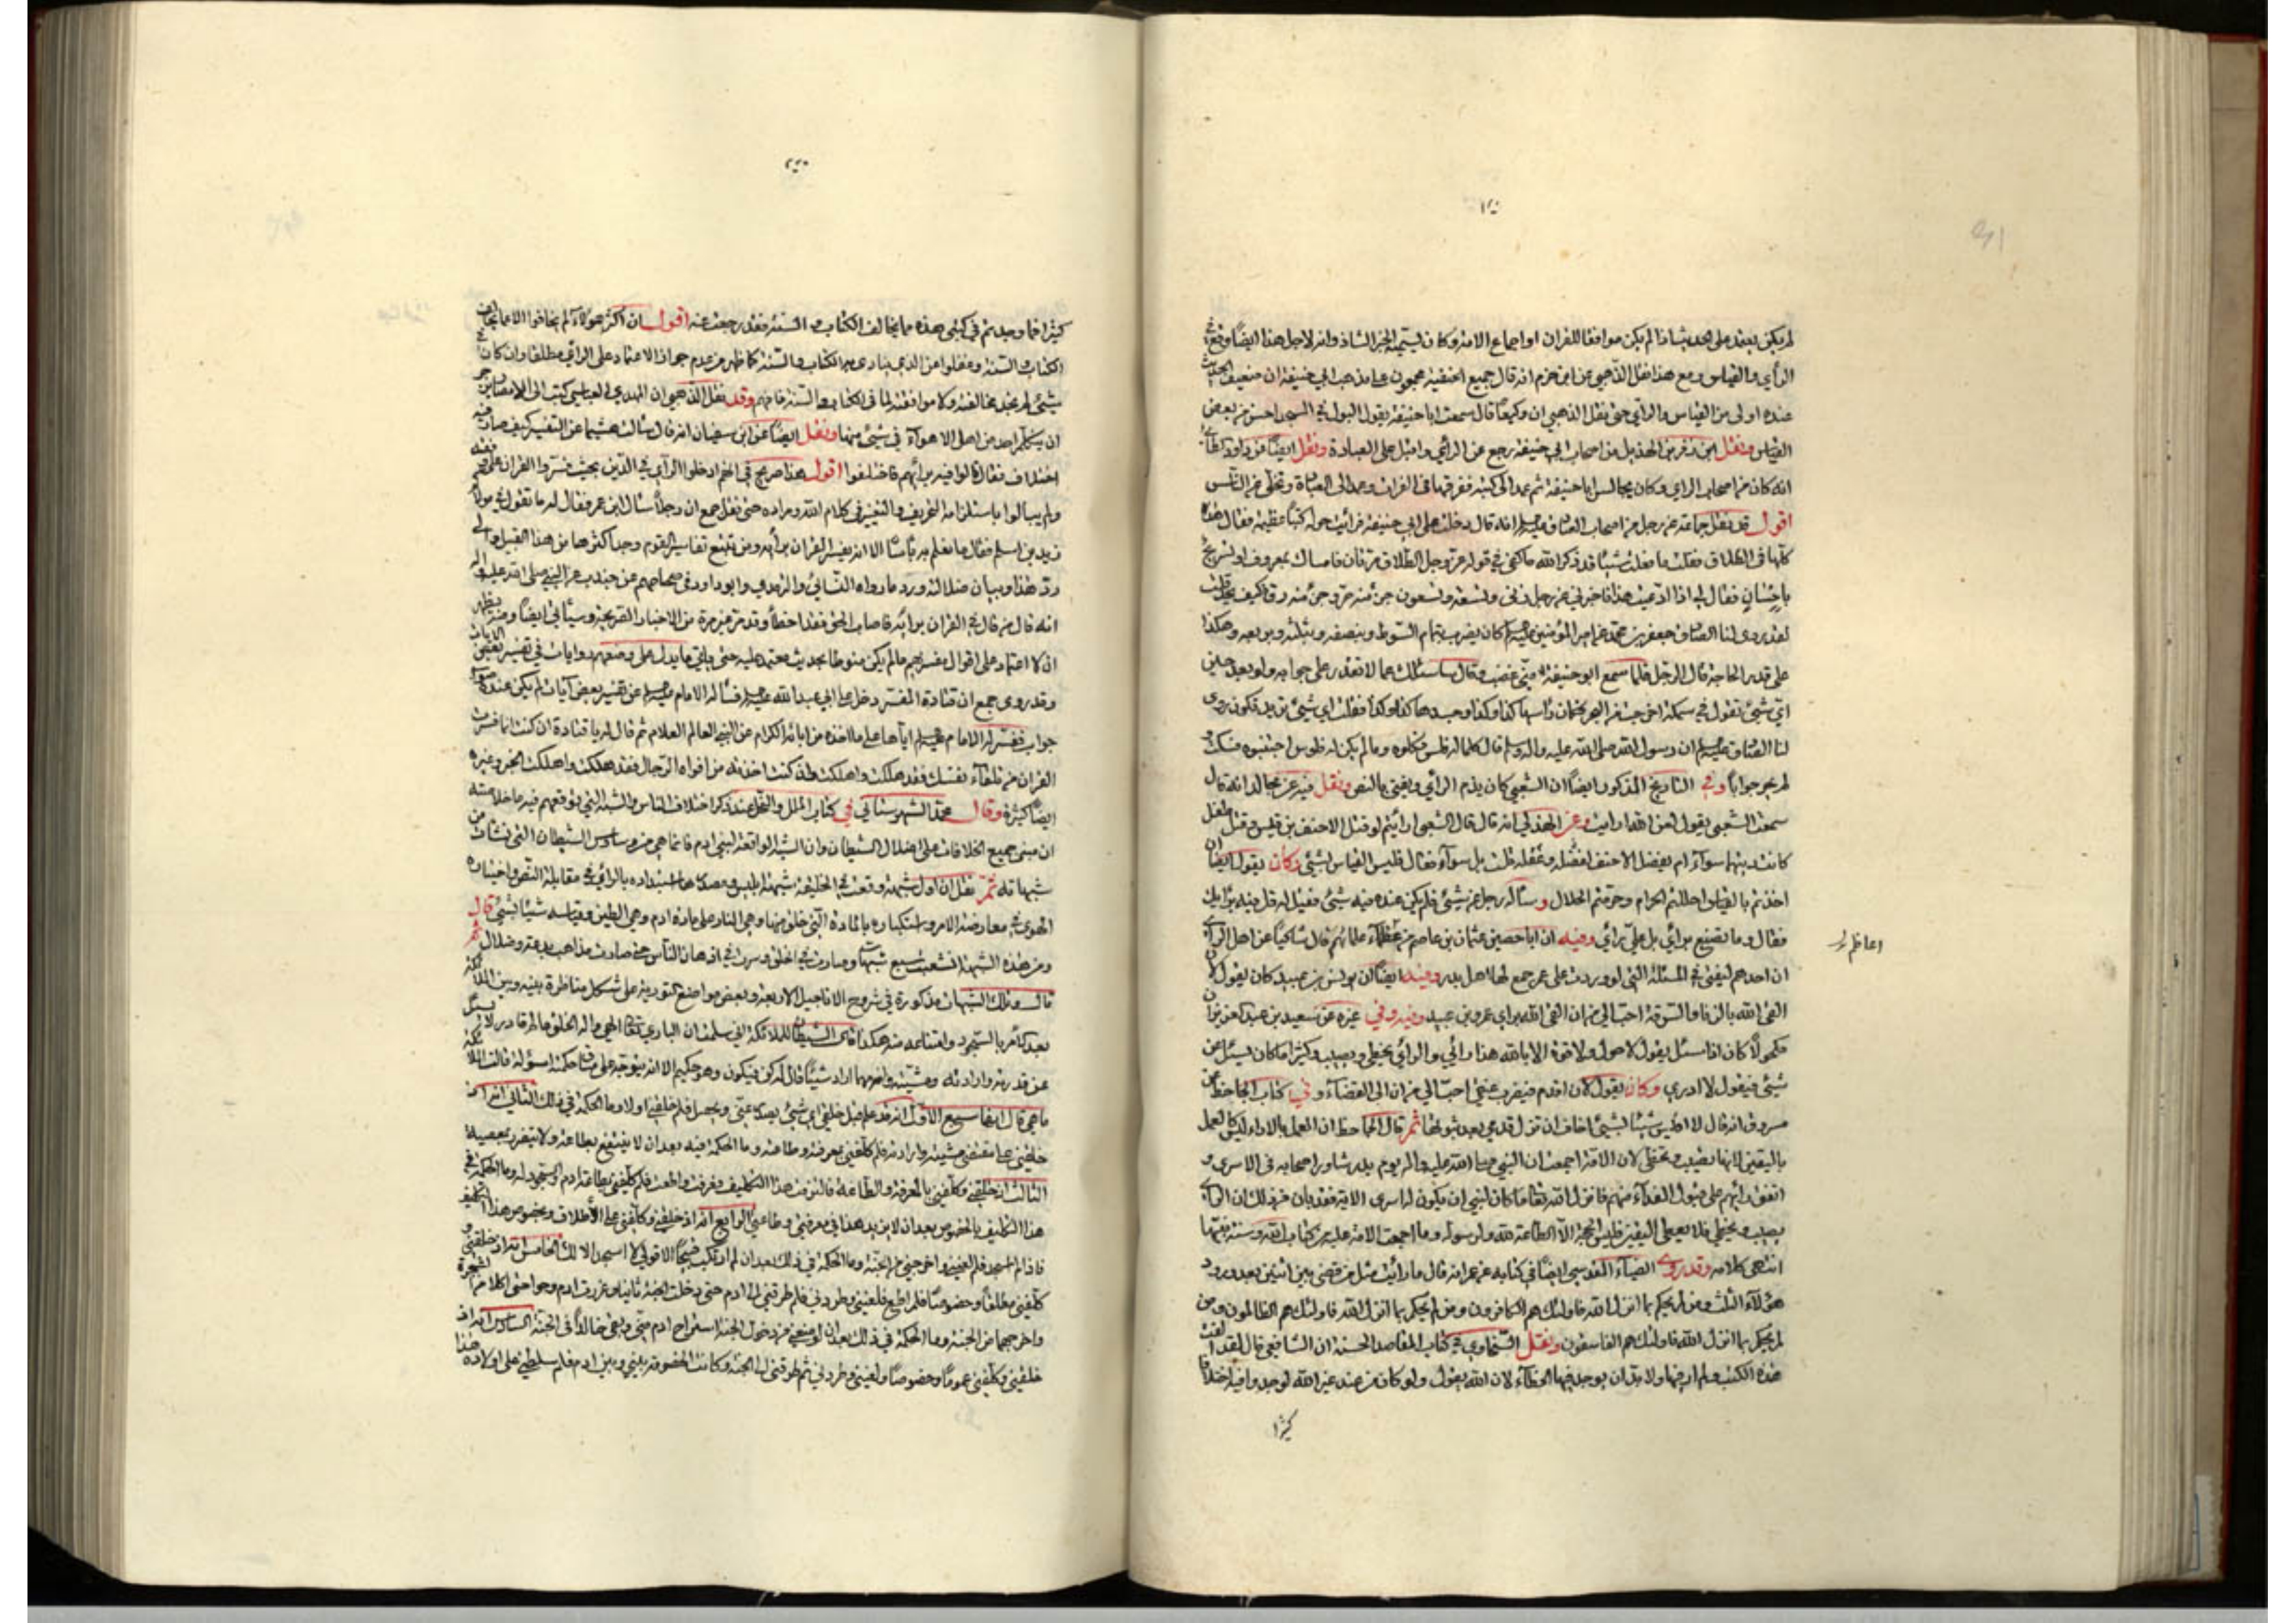 لم يكن يعتمد على الحديث اذا لم يكن موافقا للقران او اجماع الامة وكان يسميه الخبر الشاذ وانه لاجل هذا ايضا وقع في
الرأي والقياس ومع هذا نقل الذهبي عن ابن حزم انه قال جميع الحنفية مجمعون على مذهب ابي حنيفة ان ضعيف الحديث
عنده اولى من القياس والرأي حتى نقل الذهبي ان وكيعا قال سمعت ابا حنيفة يقول البول في المسجد احسن من بعض
القياس ونقل ان زفر بن الهذيل من اصحاب ابي حنيفة رجع عن الرأي واقبل على العبادة ونقل ايضا عن داود الطائي
انه كان من اصحاب الراي وكان يجالس ابا حنيفة ثم عمد الى كتبه فغرقها في الفرات وعمد الى العبادة وتخلى من الناس
اقول قد نقل جماعة عن رجل من اصحاب الصادق انه قال دخلت على ابي حنيفة فرأيت حوله كتبا عظيمة فقال هذه
كلها في الطلاق فقلت قد ذكر الله في قوله عز وجل الطلاق مرتان فامساك بمعروف او تسريح
باحسان فقال لي اذا هذا فاخبرني عن رجل وتسعة وتسعون جزء منه حر وجزء منه رق كيف
لقد روى لنا الصادق جعفر بن محمد عن امير المؤمنين كان يضرب بتمام السوط وبنصفه وبثلثه وبربعه وهكذا
على قدر الحاجة قال الرجل فلما سمع ابو حنيفة مني غضب وقال ساسئلك عما لا تقدر على جوابه ولو بعد حين
اي شيء تقول في سمكة اخرجت من البحر كذا وكذا فقلت اي شيء تريد تكون روى
لنا الصادق ان رسول الله صلى الله عليه واله وسلم قال كلما له فلس فكلوه وما لم يكن له فلوس اجتنبوه فسكت
لم يحر جوابا وفي التاريخ المذكور ايضا ان الشعبي كان يذم الرأي ويفتي بالنص ونقل فيه عن مجالد انه قال
سمعت الشعبي يقول لعن الله ارايت وعن الهذلي انه قال قال الشعبي ارأيتم لو قتل الاحنف بن قيس وقتل طفل
كانت ديتهما سواء ام يفضل الاحنف لعقله قلت بل سواء فقال فليس القياس بشيء وكان يقول ايضا ان
اخذتم بالقياس احللتم الحرام وحرمتم الحلال وسأله رجل عن شيء فلم يكن عنده فيه شيء فقيل له قل فيه برأيك
فقال وما تصنع برأيي بل على برأيي وفيه ان ابا حصين عثمان بن عاصم من عظماء علمائهم قال شاكيا عن اهل الرأي
اعاظم
ان احدهم ليفتي في المسئلة التي لو وردت على عمر جمع لها اهل بدر وفيه ايضا ان يونس بن عبيد كان يقول لان
القى الله بالزنا والسرقة احب الي من ان القى الله براي عمرو بن عبيد وفيه وفي غيره عن سعيد بن عبد العزيز ان
مكحولا كان اذا سئل يقول لا حول ولا قوة الا بالله هذا رائي والرأي يخطي ويصيب وكثيرا ما كان يسئل عن
شيء فيقول لا ادري وكان يقول لان اقدم فيضرب عنقي احب الي من ان الى القضاء وفي كتاب الجاحظ عن
مسروق انه قال لا اقيس شيئا بشيء اخاف ان تزل قدمي بعد ثبوتها ثم قال الجاحظ ان العمل بالاراء ليس كالعمل
باليقين لانها تصيب وتخطي لان الامة اجمعت ان النبي صلى الله عليه واله يوم بدر شاور اصحابه في الاسرى و
اتفق رايهم على قبول الفداء منهم فانزل الله تعالى ما كان لنبي ان يكون له اسرى الاية فقد بان من ذلك ان الرأي
يصيب ويخطي فلا يعطى اليقين فليس الحجة الا الطاعة لله ولرسوله وما اجمعت الامة عليه من كتاب الله وسنة نبيها
انتهى كلامه وقد روى الضياء المقدسي ايضا في كتابه عن عمر انه قال ما رأيت مثل من قضى بين اثنين بعد ورود
هؤلاء الثلث ومن لم يحكم بما انزل الله فاولئك هم الكافرون ومن لم يحكم بما انزل الله فاولئك هم الظالمون ومن
لم يحكم بما انزل الله فاولئك هم الفاسقون ونقل السخاوي في كتاب المقاصد الحسنة ان الشافعي قال لقد الفت
هذه الكتب ولم ال فيها ولا بد ان يوجد فيها الخطاء لان الله يقول ولو كان من عند غير الله لوجدوا فيه اختلافا
كثيرا
كثيرا فما وجدتم في كتبي هذه مما يخالف الكتاب والسنة فقد رجعت عنه اقول ان اكثر هؤلاء لم يخافوا الا مما يخالف
الكتاب والسنة وغفلوا عن الذي ينادي به الكتاب والسنة كما ظهر من عدم جواز الاعتماد على الرأي مطلقا وان كان في
شيء لم يجد مخالفته ولا موافقته لما في الكتاب والسنة فافهم وقد نقل الذهبي ان المهدي العباسي كتب الى الامصار
ان يتكلم احد من اهل الاهواء في شيء منها ونقل ايضا عن ابن سفيان انه قال سألت هشيما عن التفسير كيف صار فيه
اختلاف فقال قالوا فيه برأيهم فاختلفوا اقول هذا صريح في انهم ادخلوا الرأي في الدين بحيث فسروا القران على
ولم يبالوا باستلزامه التحريف والتغيير في كلام الله ومراده حتى نقل جمع ان رجلا سأل ابن عمر فقال له ما تقول في مولا
زيد بن اسلم فقال ما نعلم به بأسا الا انه يفسر القران برأيه ومن تتبع تفاسير القوم وجد اكثرها من هذا القبيل
رد هذا وبيان ضلالته ورد ما رواه النسائي والترمذي وابو داود في صحاحهم عن جندب عن النبي صلى الله عليه واله
انه قال من قال في القران برأيه فاصاب الحق فقد اخطأ وقد مر غير مرة من الاخبار الصريحة وسيأتي ايضا ومنه يظهر
ان لا اعتماد على اقوال مفسريهم مالم يكن منوطا بحديث معتمد عليه حتى ياتي ما يدل على وضعهم روايات في تفسير بعض الايات
وقد روى جمع ان قتادة المفسر دخل على ابي عبد الله فسأله الامام عن تفسير بعض آيات لم يكن عنده
جواب ففسر له الامام اياها على ما اخذه من ابائه الكرام عن النبي العالم العلام ثم قال له يا قتادة ان كنت انما فسرت
القران من تلقاء نفسك فقد هلكت واهلكت وان كنت اخذته من افواه الرجال فقد هلكت واهلكت الخبر وغيره
ايضا كثيرة وقال محمد الشهرستاني في كتاب الملل والنحل عند ذكر اختلاف الناس والشبه التي توقعهم فيه ما خلاصته
ان مبنى جميع الخلافات على اضلال الشيطان وان الشبه الواقعة لبني ادم فانما هي من وساوس الشيطان التي نشأت من
شبهاته ثم نقل ان اول شبهة وقعت في الخليقة شبهة ابليس ومصدرها استبداده بالرأي في مقابلة النص واختياره
الهوى في معارضة الامر واستكباره بالمادة التي خلق منها وهي النار على مادة ادم وهي الطين وقياسه شيئا بشيء قال
ومن هذه الشبهة انشعبت سبع شبهات وصارت في الخلق وسرت في اذهان الناس حتى صارت مذاهب بدعة وضلال ثم
قال وتلك الشبهات مذكورة في شروح الاناجيل الاربعة وبعض مواضع التورية على شكل مناظرة بينه وبين الملائكة
بعد كامر بالسجود وامتناعه منه هكذا قال الشيطان للملائكة اني سلمت ان الباري تعالى الهي واله الخلق عالم قادر لا يسئل
عن قدرته وارادته ومشيته وانه مهما اراد شيئا قال له كن فيكون وهو حكيم الا انه يتوجه على مساق حكمته اسؤلة قالت الملائكة
ما هي قال انها سبع الاول انه قد علم قبل خلقي اي شيء يصدر عني ويحصل فلم خلقني اولا وما الحكمة في ذلك الثاني انه اذ
خلقني على مقتضى مشيته وارادته فلم كلفني بمعرفته وطاعته وما الحكمة فيه بعد ان لا ينتفع بطاعته ولا يتضرر بمعصية
الثالث انه اذ خلقني وكلفني بالمعرفة والطاعة فالتزمت هذا التكليف وعرفت واطعت فلم كلفني بطاعة ادم والسجود له وما الحكمة في
هذا التكليف بالخصوص بعد ان لا يزيد هذا في معرفتي وطاعتي الرابع انه اذ خلقني وكلفني على الاطلاق وبخصوص هذا التكليف
فاذا لم اسجد فلم لعنني واخرجني من الجنة وما الحكمة في ذلك بعد ان لم ارتكب قبيحا الا قولي لا اسجد الا لك الخامس انه اذ خلقني و
كلفني مطلقا وخصوصا فلم اطع فلعنني وطردني فلم طرقني الى ادم حتى دخلت الجنة ثانيا وغررت ادم وحوا حتى اكلا من الشجرة
واخرجهما من الجنة وما الحكمة في ذلك بعد ان لو منعني من دخول الجنة استراح ادم مني وبقي خالدا في الجنة السادس انه اذ
خلقني وكلفني عموما وخصوصا ولعنني وطردني ثم طرقني الى الجنة وكانت الخصومة بيني وبين ادم فلم سلطني على اولاده